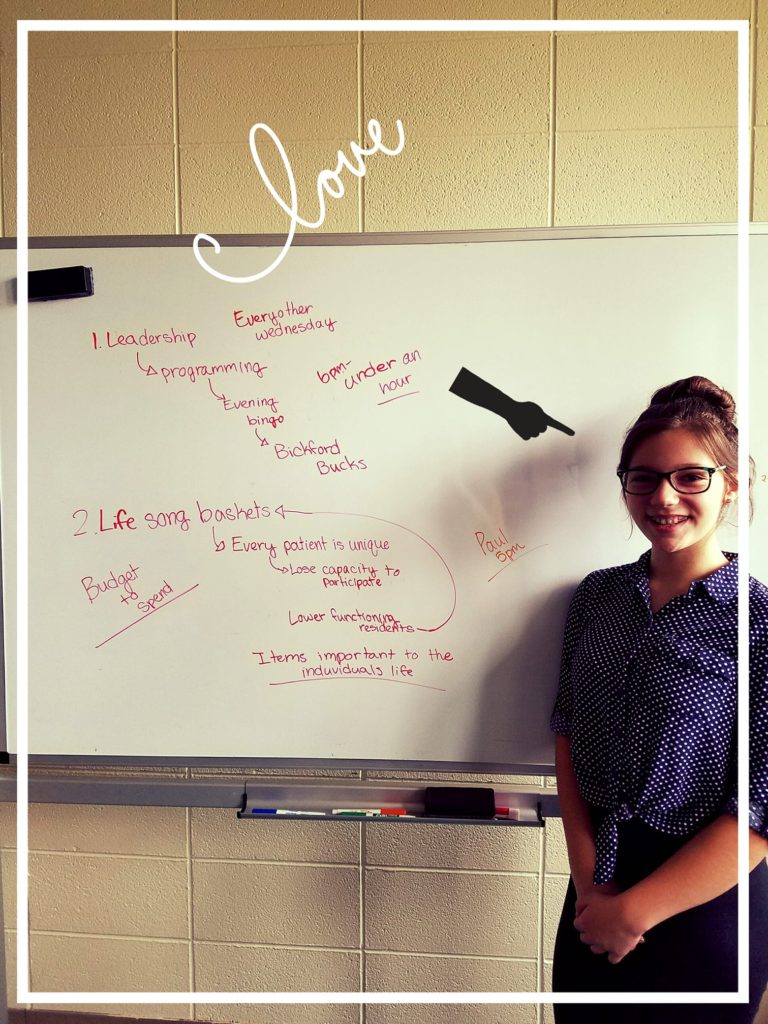 love
1. Leadership
Everyother
wednesday
programming
6pm-
under an
hour
Evening
bingo
Bickford
Bucks
2. Life song baskets
Every patient is unique
Lose capacity to
participate
Paul
5pm
Budget
to
spend
Lower functioning
residents
Items important to the
induviduals life